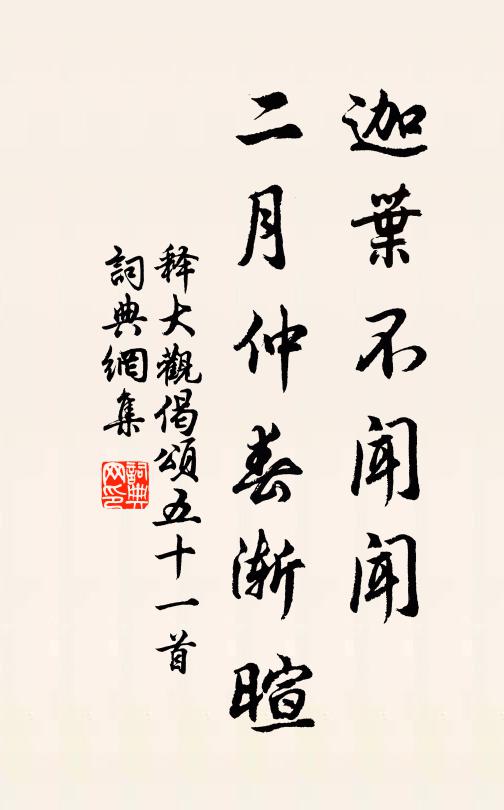 迦葉不聞聞
二月仲春漸暄
释大觀偈頌五十一首
詞典網集
詞典網印